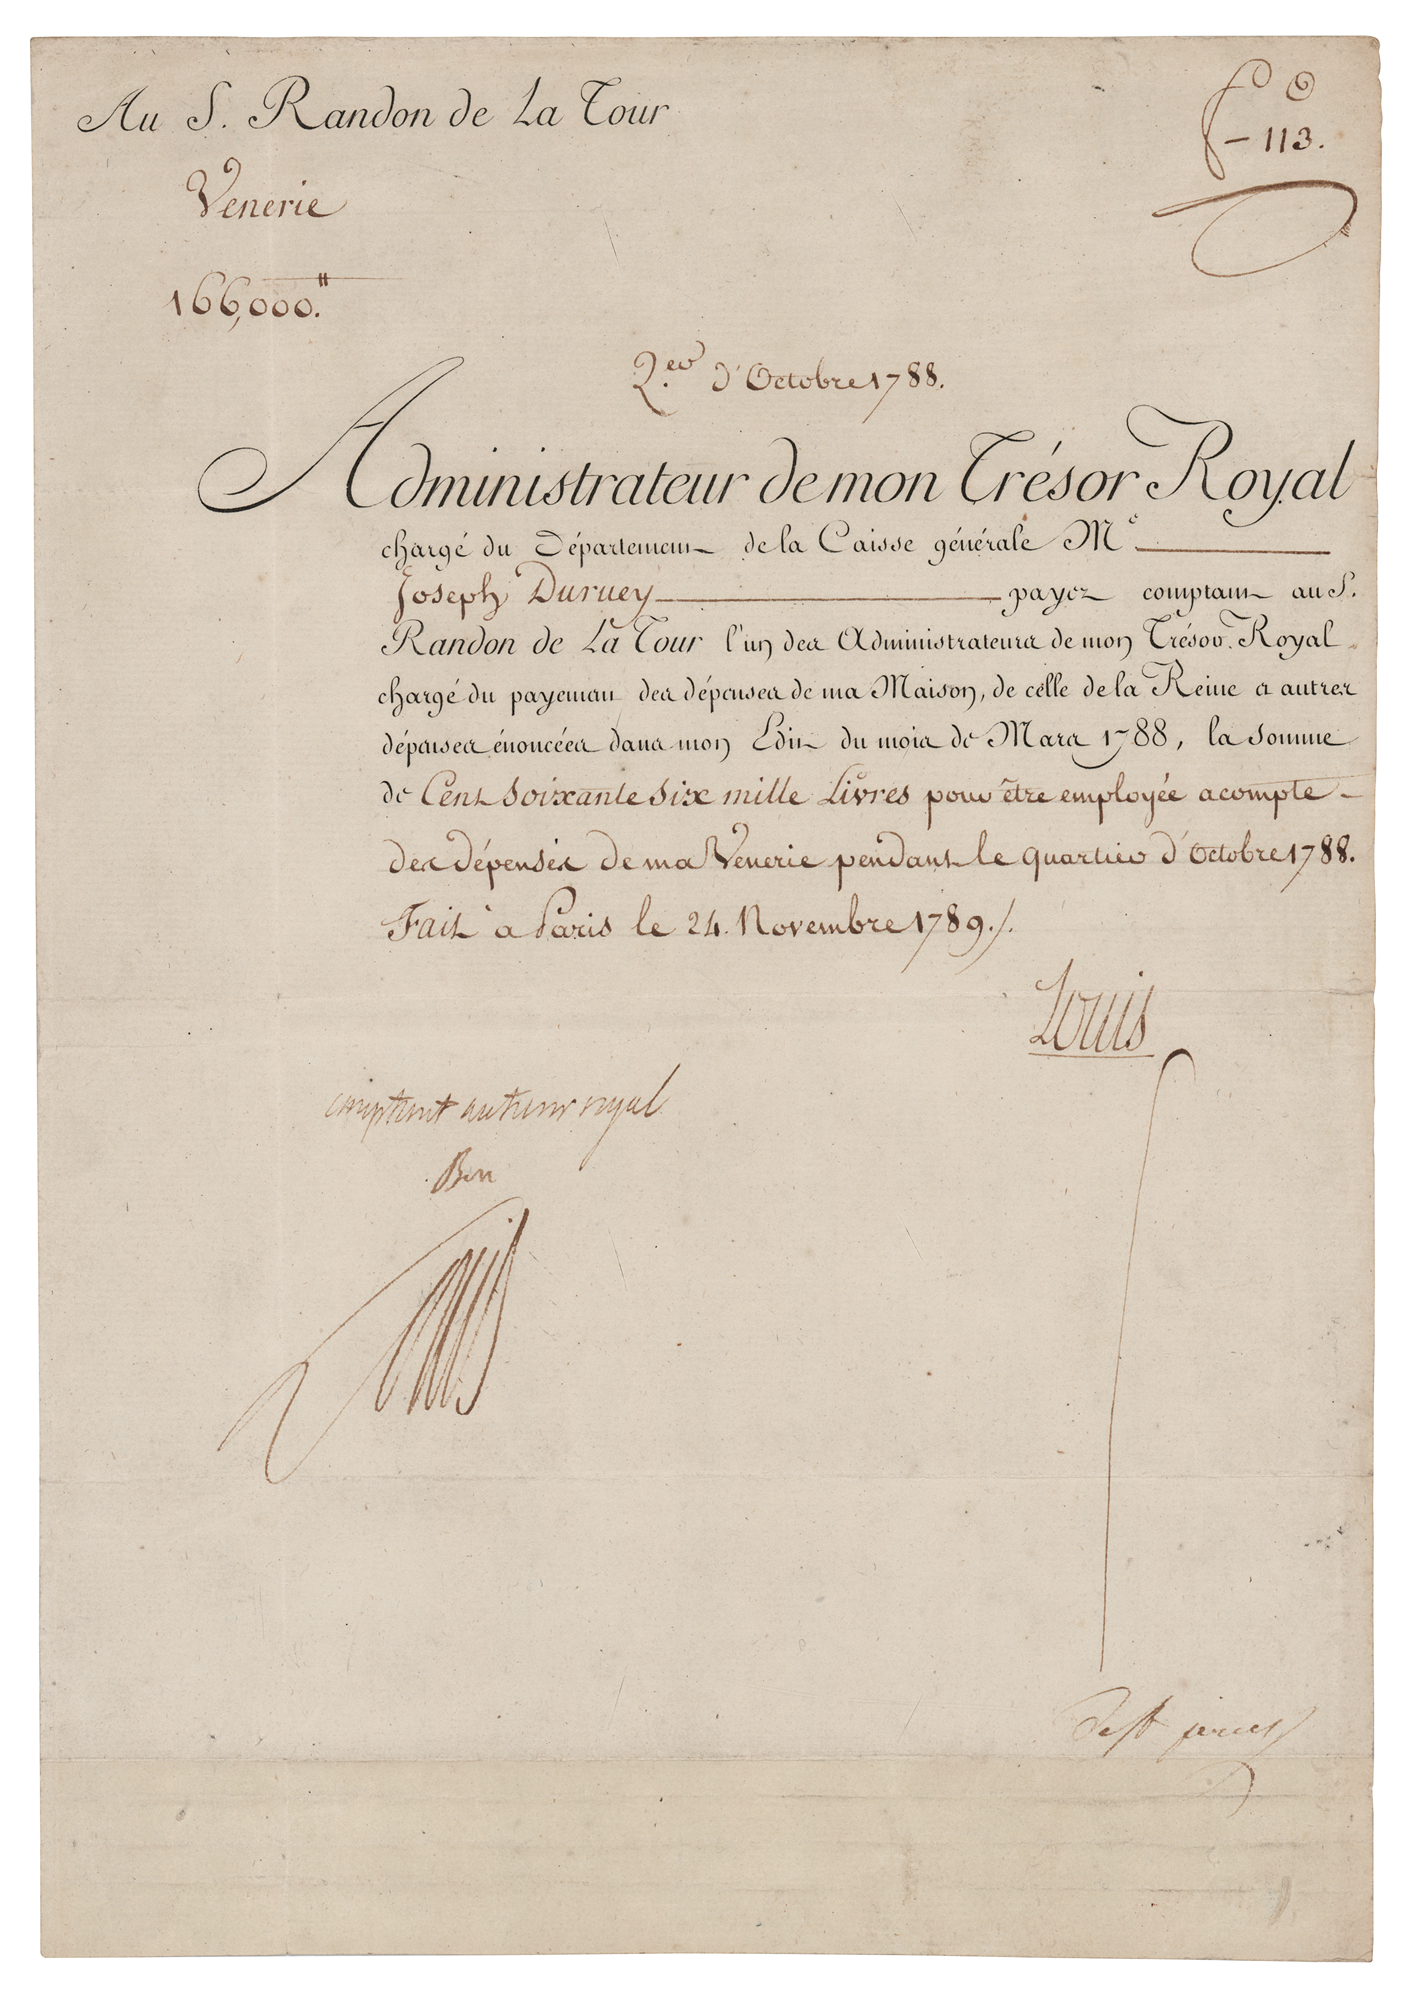 Au S. Randon de La Tour
Venerie
166,000.₶
113.
Q.er d'Octobre 1788.
Administrateur de mon Trésor Royal
chargé du Département de la Caisse générale Me
Joseph Duruey payez comptant au S.
Randon de La Tour l'un des Administrateurs de mon Trésor Royal
chargé du payement des dépenses de ma Maison, de celle de la Reine et autres
dépenses énoncées dans mon Edit du mois de Mars 1788, la somme
de Cent soixante six mille Livres pour être employée acompte
des dépenses de ma Venerie pendant le quartier d'Octobre 1788.
Fait à Paris le 24. Novembre 1789./.
Louis
comptant au tresor royal
Bon
Louis